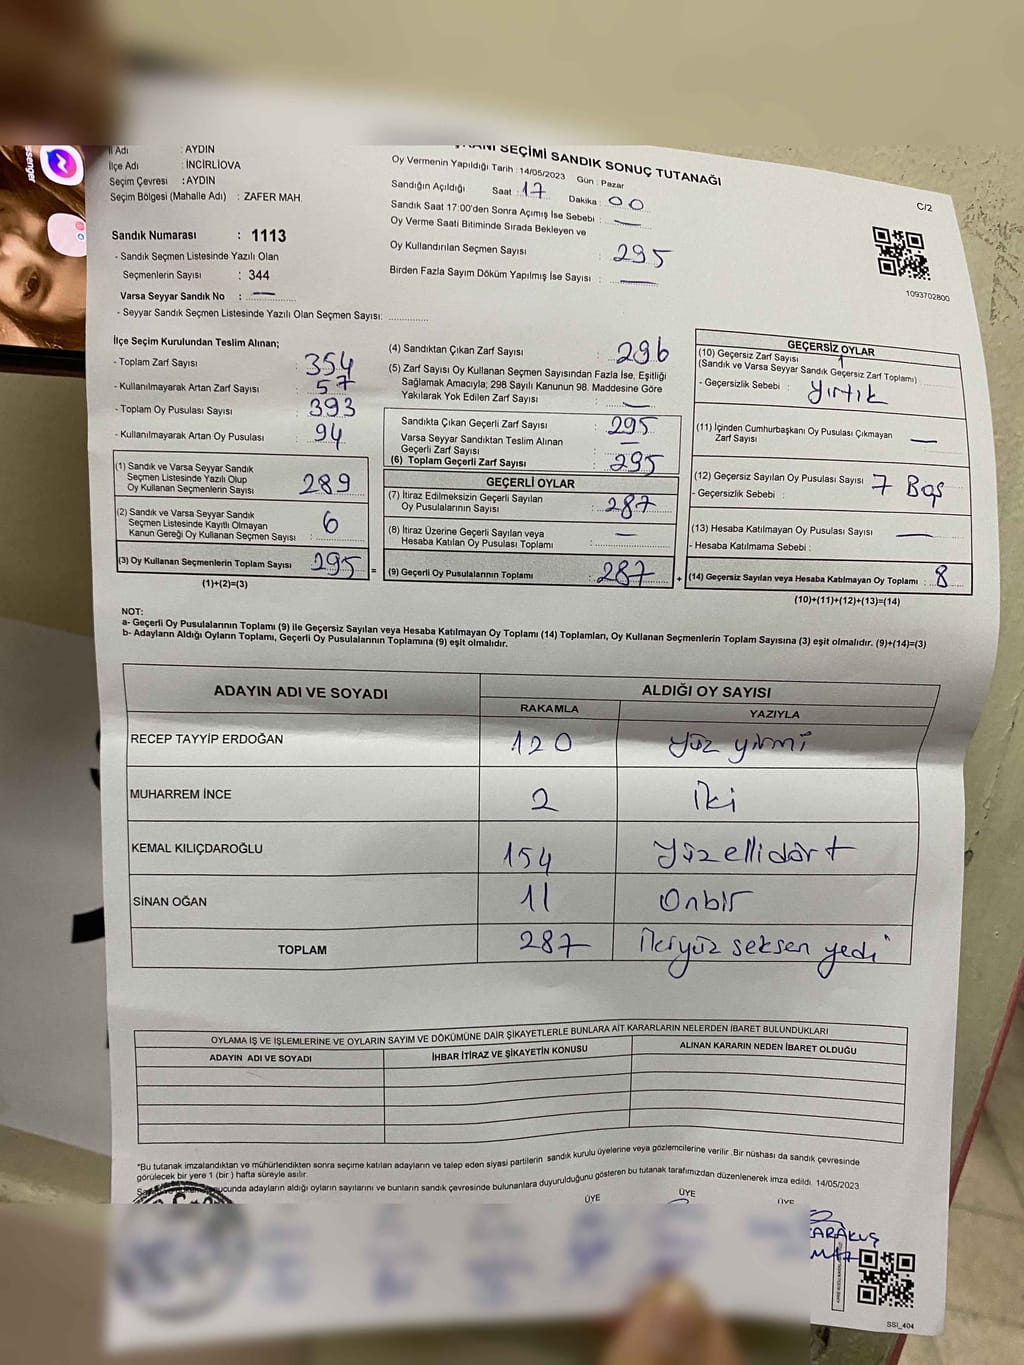 senger
İl Adı : AYDIN
İlçe Adı : İNCİRLİOVA
Seçim Çevresi : AYDIN
Seçim Bölgesi (Mahalle Adı) : ZAFER MAH.
SEÇİMİ SANDIK SONUÇ TUTANAĞI
Oy Vermenin Yapıldığı Tarih : 14/05/2023 Gün : Pazar
Sandığın Açıldığı Saat : 17 Dakika : 00
Sandık Saat 17:00'den Sonra Açımış İse Sebebi : —
Oy Verme Saati Bitiminde Sırada Bekleyen ve
Oy Kullandırılan Seçmen Sayısı : 295
Birden Fazla Sayım Döküm Yapılmış İse Sayısı : —
C/2
1093702800
Sandık Numarası : 1113
- Sandık Seçmen Listesinde Yazılı Olan
Seçmenlerin Sayısı : 344
Varsa Seyyar Sandık No : —
- Seyyar Sandık Seçmen Listesinde Yazılı Olan Seçmen Sayısı:
İlçe Seçim Kurulundan Teslim Alınan;
- Toplam Zarf Sayısı : 354
- Kullanılmayarak Artan Zarf Sayısı : 57
- Toplam Oy Pusulası Sayısı : 393
- Kullanılmayarak Artan Oy Pusulası : 94
(1) Sandık ve Varsa Seyyar Sandık
Seçmen Listesinde Yazılı Olup
Oy Kullanan Seçmenlerin Sayısı : 289
(2) Sandık ve Varsa Seyyar Sandık
Seçmen Listesinde Kayıtlı Olmayan
Kanun Gereği Oy Kullanan Seçmen Sayısı : 6
(3) Oy Kullanan Seçmenlerin Toplam Sayısı : 295 =
(1)+(2)=(3)
(4) Sandıktan Çıkan Zarf Sayısı : 296
(5) Zarf Sayısı Oy Kullanan Seçmen Sayısından Fazla İse, Eşitliği
Sağlamak Amacıyla; 298 Sayılı Kanunun 98. Maddesine Göre
Yakılarak Yok Edilen Zarf Sayısı : —
Sandıkta Çıkan Geçerli Zarf Sayısı : 295
Varsa Seyyar Sandıktan Teslim Alınan
Geçerli Zarf Sayısı : —
(6) Toplam Geçerli Zarf Sayısı : 295
GEÇERLİ OYLAR
(7) İtiraz Edilmeksizin Geçerli Sayılan
Oy Pusulalarının Sayısı : 287
(8) İtiraz Üzerine Geçerli Sayılan veya
Hesaba Katılan Oy Pusulası Toplamı : —
(9) Geçerli Oy Pusulalarının Toplamı : 287 +
GEÇERSİZ OYLAR
(10) Geçersiz Zarf Sayısı : 1
(Sandık ve Varsa Seyyar Sandık Geçersiz Zarf Toplamı)
- Geçersizlik Sebebi : Yırtık
(11) İçinden Cumhurbaşkanı Oy Pusulası Çıkmayan
Zarf Sayısı —
(12) Geçersiz Sayılan Oy Pusulası Sayısı : 7 Boş
- Geçersizlik Sebebi :
(13) Hesaba Katılmayan Oy Pusulası Sayısı —
- Hesaba Katılmama Sebebi :
(14) Geçersiz Sayılan veya Hesaba Katılmayan Oy Toplamı : 8
(10)+(11)+(12)+(13)=(14)
NOT:
a- Geçerli Oy Pusulalarının Toplamı (9) ile Geçersiz Sayılan veya Hesaba Katılmayan Oy Toplamı (14) Toplamları, Oy Kullanan Seçmenlerin Toplam Sayısına (3) eşit olmalıdır. (9)+(14)=(3)
b- Adayların Aldığı Oyların Toplamı, Geçerli Oy Pusulalarının Toplamına (9) eşit olmalıdır.
ADAYIN ADI VE SOYADI ALDIĞI OY SAYISI
RAKAMLA YAZIYLA
RECEP TAYYİP ERDOĞAN 120 yüz yirmi
MUHARREM İNCE 2 iki
KEMAL KILIÇDAROĞLU 154 yüzellidört
SİNAN OĞAN 11 Onbir
TOPLAM 287 ikiyüz seksen yedi
OYLAMA İŞ VE İŞLEMLERİNE VE OYLARIN SAYIM VE DÖKÜMÜNE DAİR ŞİKAYETLERLE BUNLARA AİT KARARLARIN NELERDEN İBARET BULUNDUKLARI
ADAYIN ADI VE SOYADI İHBAR İTİRAZ VE ŞİKAYETİN KONUSU ALINAN KARARIN NEDEN İBARET OLDUĞU
"Bu tutanak imzalandıktan ve mühürlendikten sonra seçime katılan adayların ve talep eden siyasi partilerin sandık kurulu üyelerine veya gözlemcilerine verilir .Bir nüshası da sandık çevresinde
görülecek bir yere 1 (bir ) hafta süreyle asılır.
ucunda adayların aldığı oyların sayılarını ve bunların sandık çevresinde bulunanlara duyurulduğunu gösteren bu tutanak tarafımızdan düzenlenerek imza edildi. 14/05/2023
ÜYE ÜYE ÜYE
KARAKUŞ
SSI_404